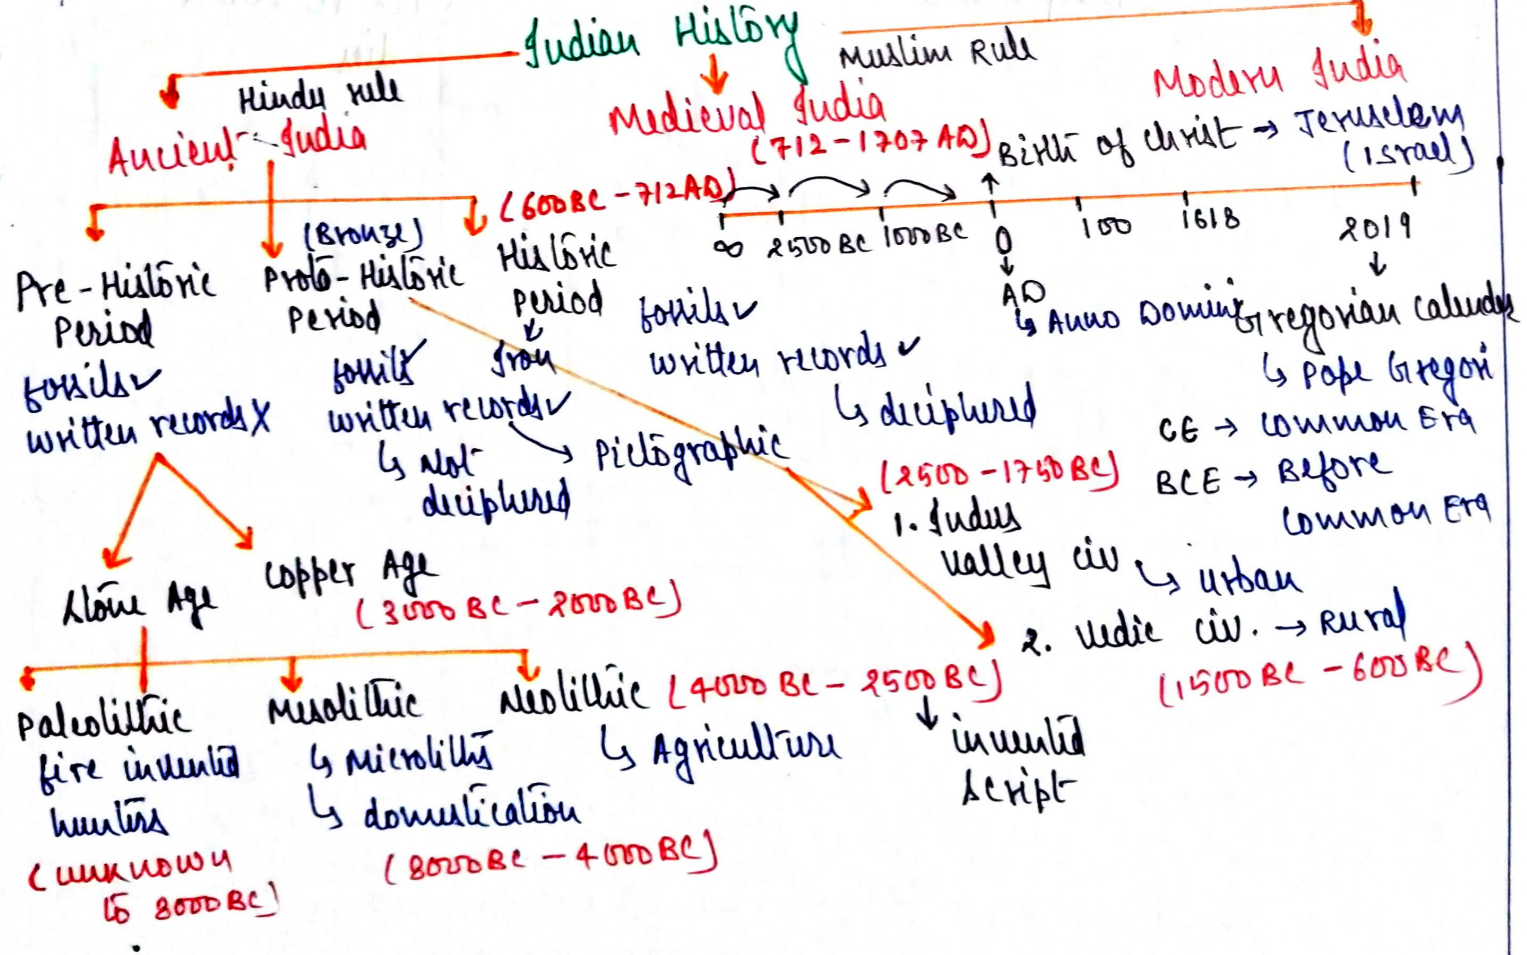 Indian History
Hindu rule
Muslim Rule
Ancient India
Medieval India
(712-1707 AD)
Modern India
Birth of Christ → Jeruselem
(Israel)
(600BC-712AD)
∞ 2500 BC 1000 BC 0 100 1618 2019
AD
↳ Anno Domini
Gregorian Calendar
↳ Pope Gregori
CE → Common Era
BCE → Before
Common Era
Pre-Historic
Period
fossils ✓
written records X
(Bronze)
Proto-Historic
Period
fossils ✓
written records ✓
↳ Not
deciphered
→ Pictographic
Historic
Period
Iron
fossils ✓
written records ✓
↳ deciphered
(2500-1750 BC)
1. Indus
Valley Civ
↳ urban
2. Vedic Civ. → Rural
(1500 BC - 600 BC)
Stone Age
Copper Age
(3000 BC - 2000 BC)
Paleolithic
fire invented
hunters
(unknown
to 8000 BC)
Mesolithic
↳ Microliths
↳ domestication
(8000 BC - 4000 BC)
Neolithic (4000 BC - 2500 BC)
↳ Agriculture
↓ invented
script